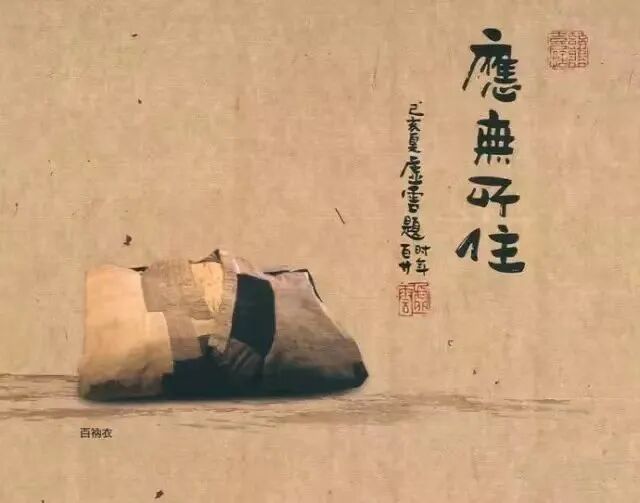 應無所住
己亥夏虛雲題
时年百廿
百衲衣